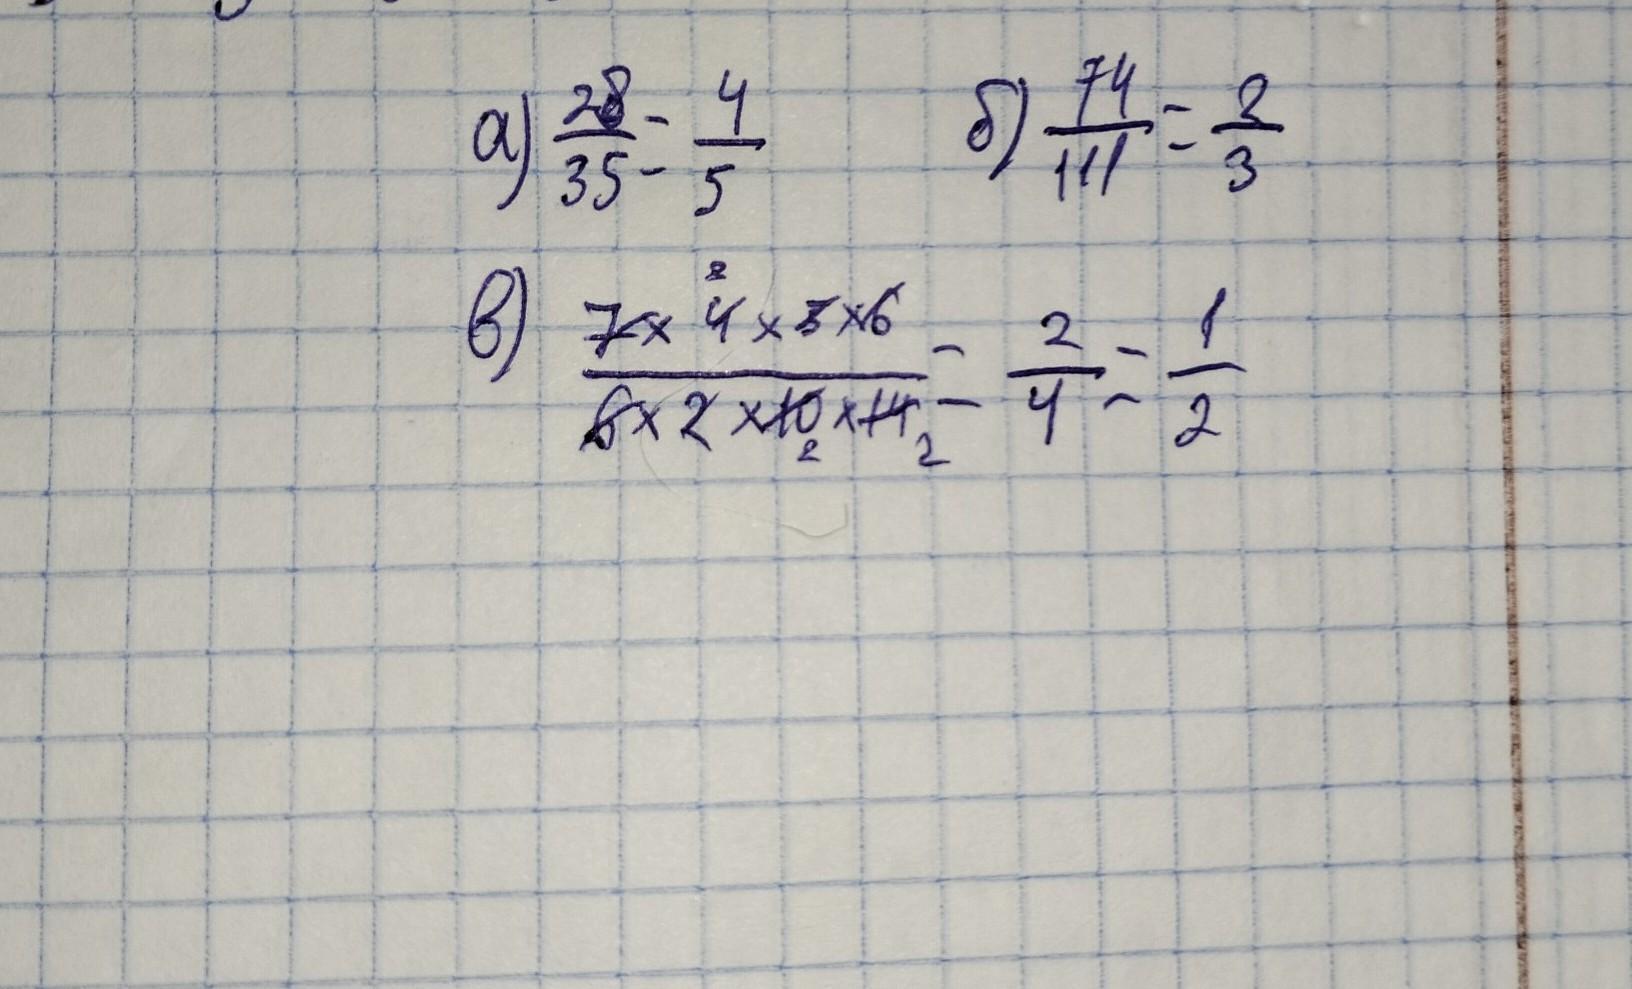 а) 28/35 = 4/5 б) 74/111 = 2/3
в) 7 × 4 × 5 × 6 / 6 × 2 × 10 × 14 = 2/4 = 1/2
2
2 2